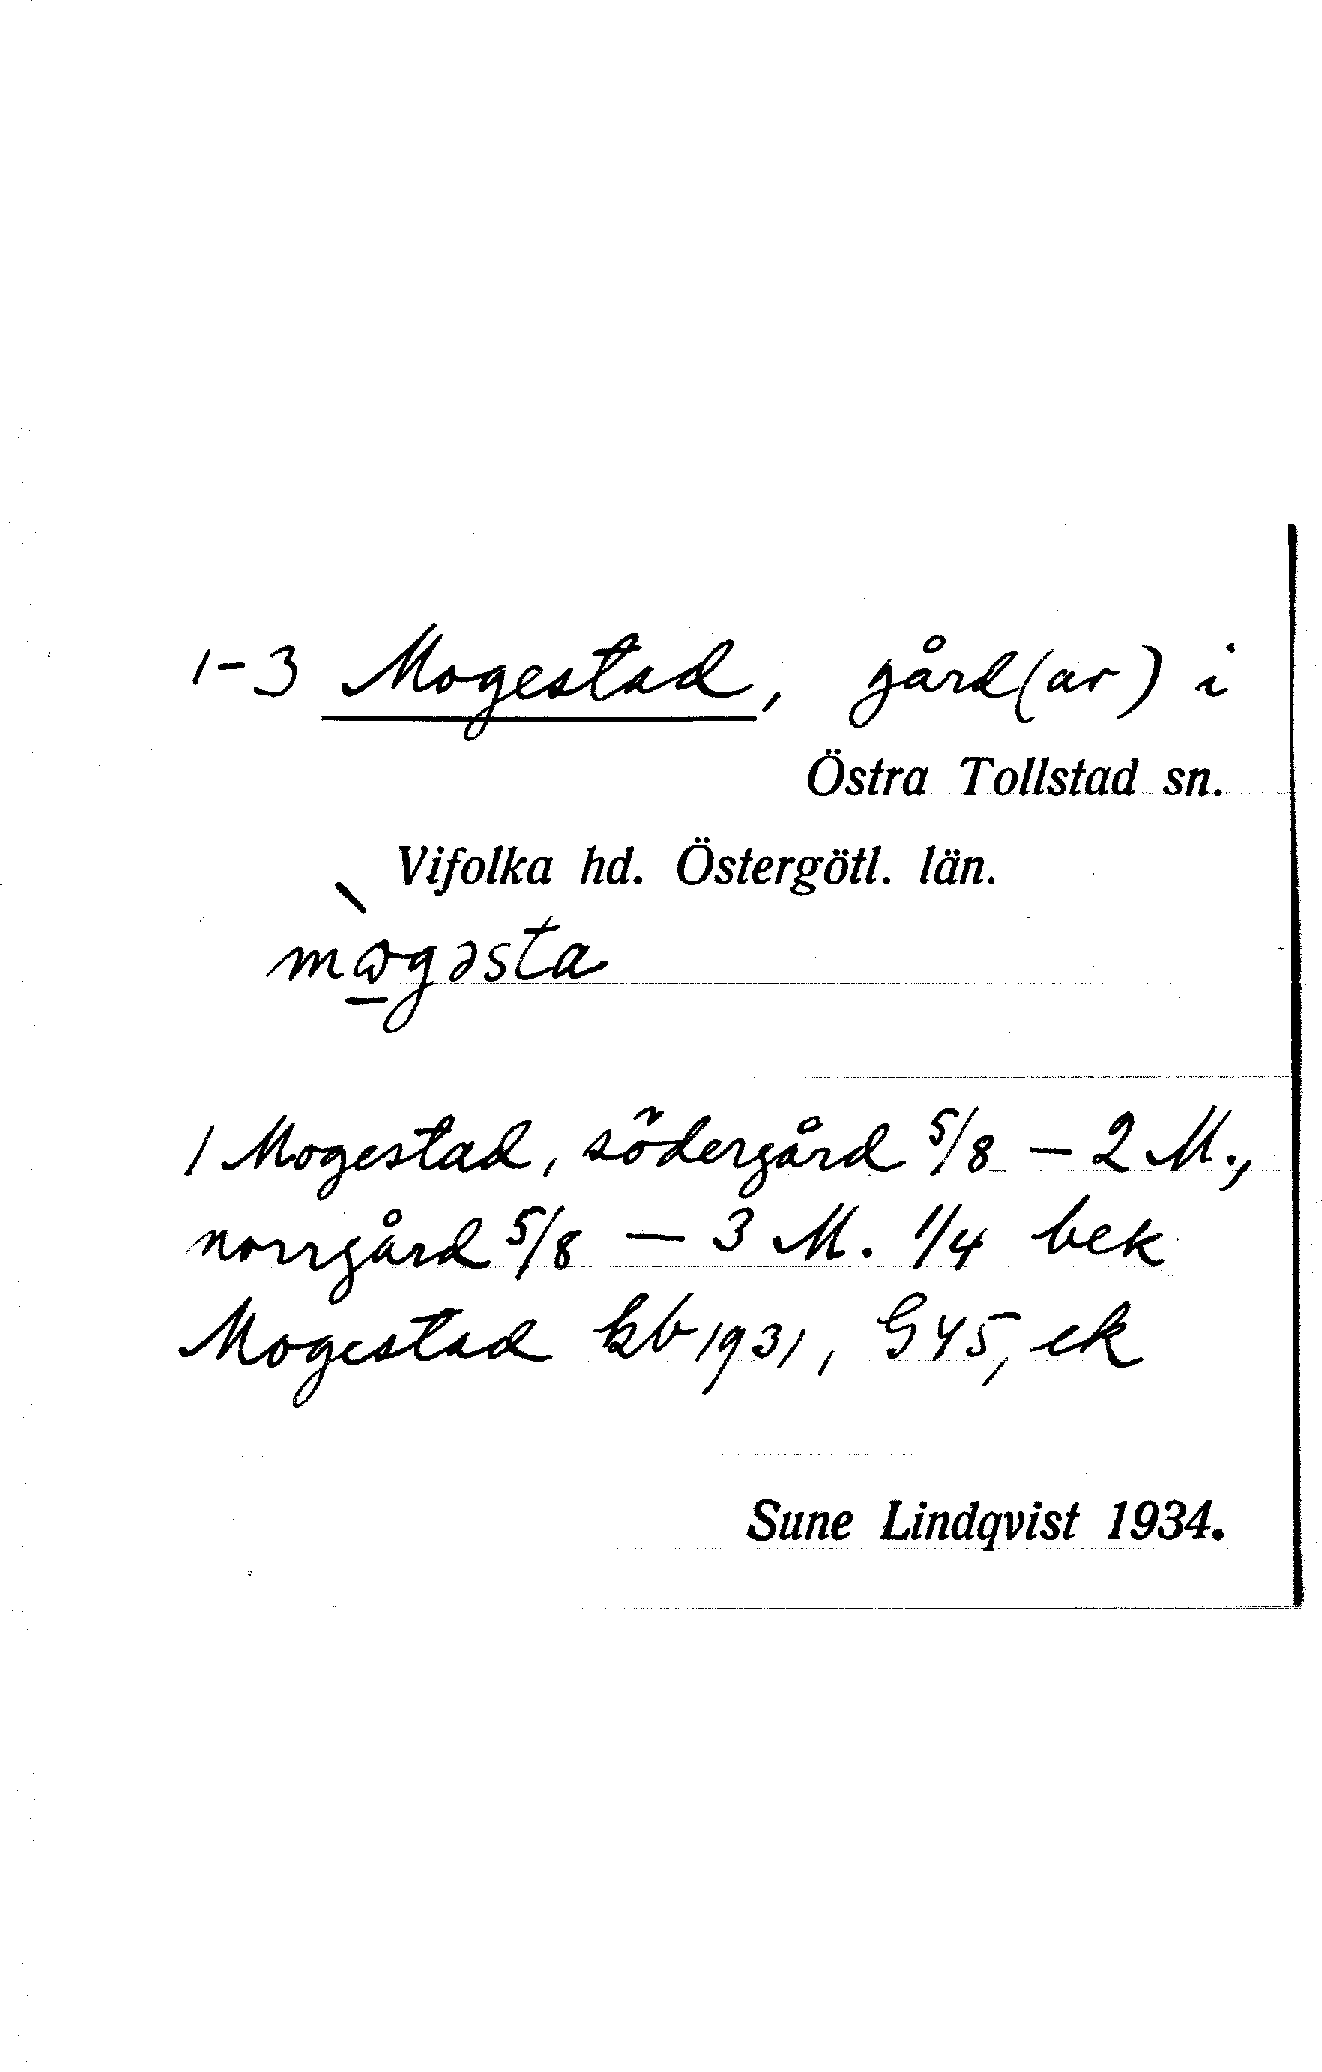 1-3 Mogestad, gård(ar) i
Östra Tollstad sn.
Vifolka hd. Östergötl. län.
mògəsta
1 Mogestad, södergård 5/8 — 2 M.,
norrgård 5/8 — 3 M. 1/4 bek
Mogestad kb 1931, G45, ek
Sune Lindqvist 1934.